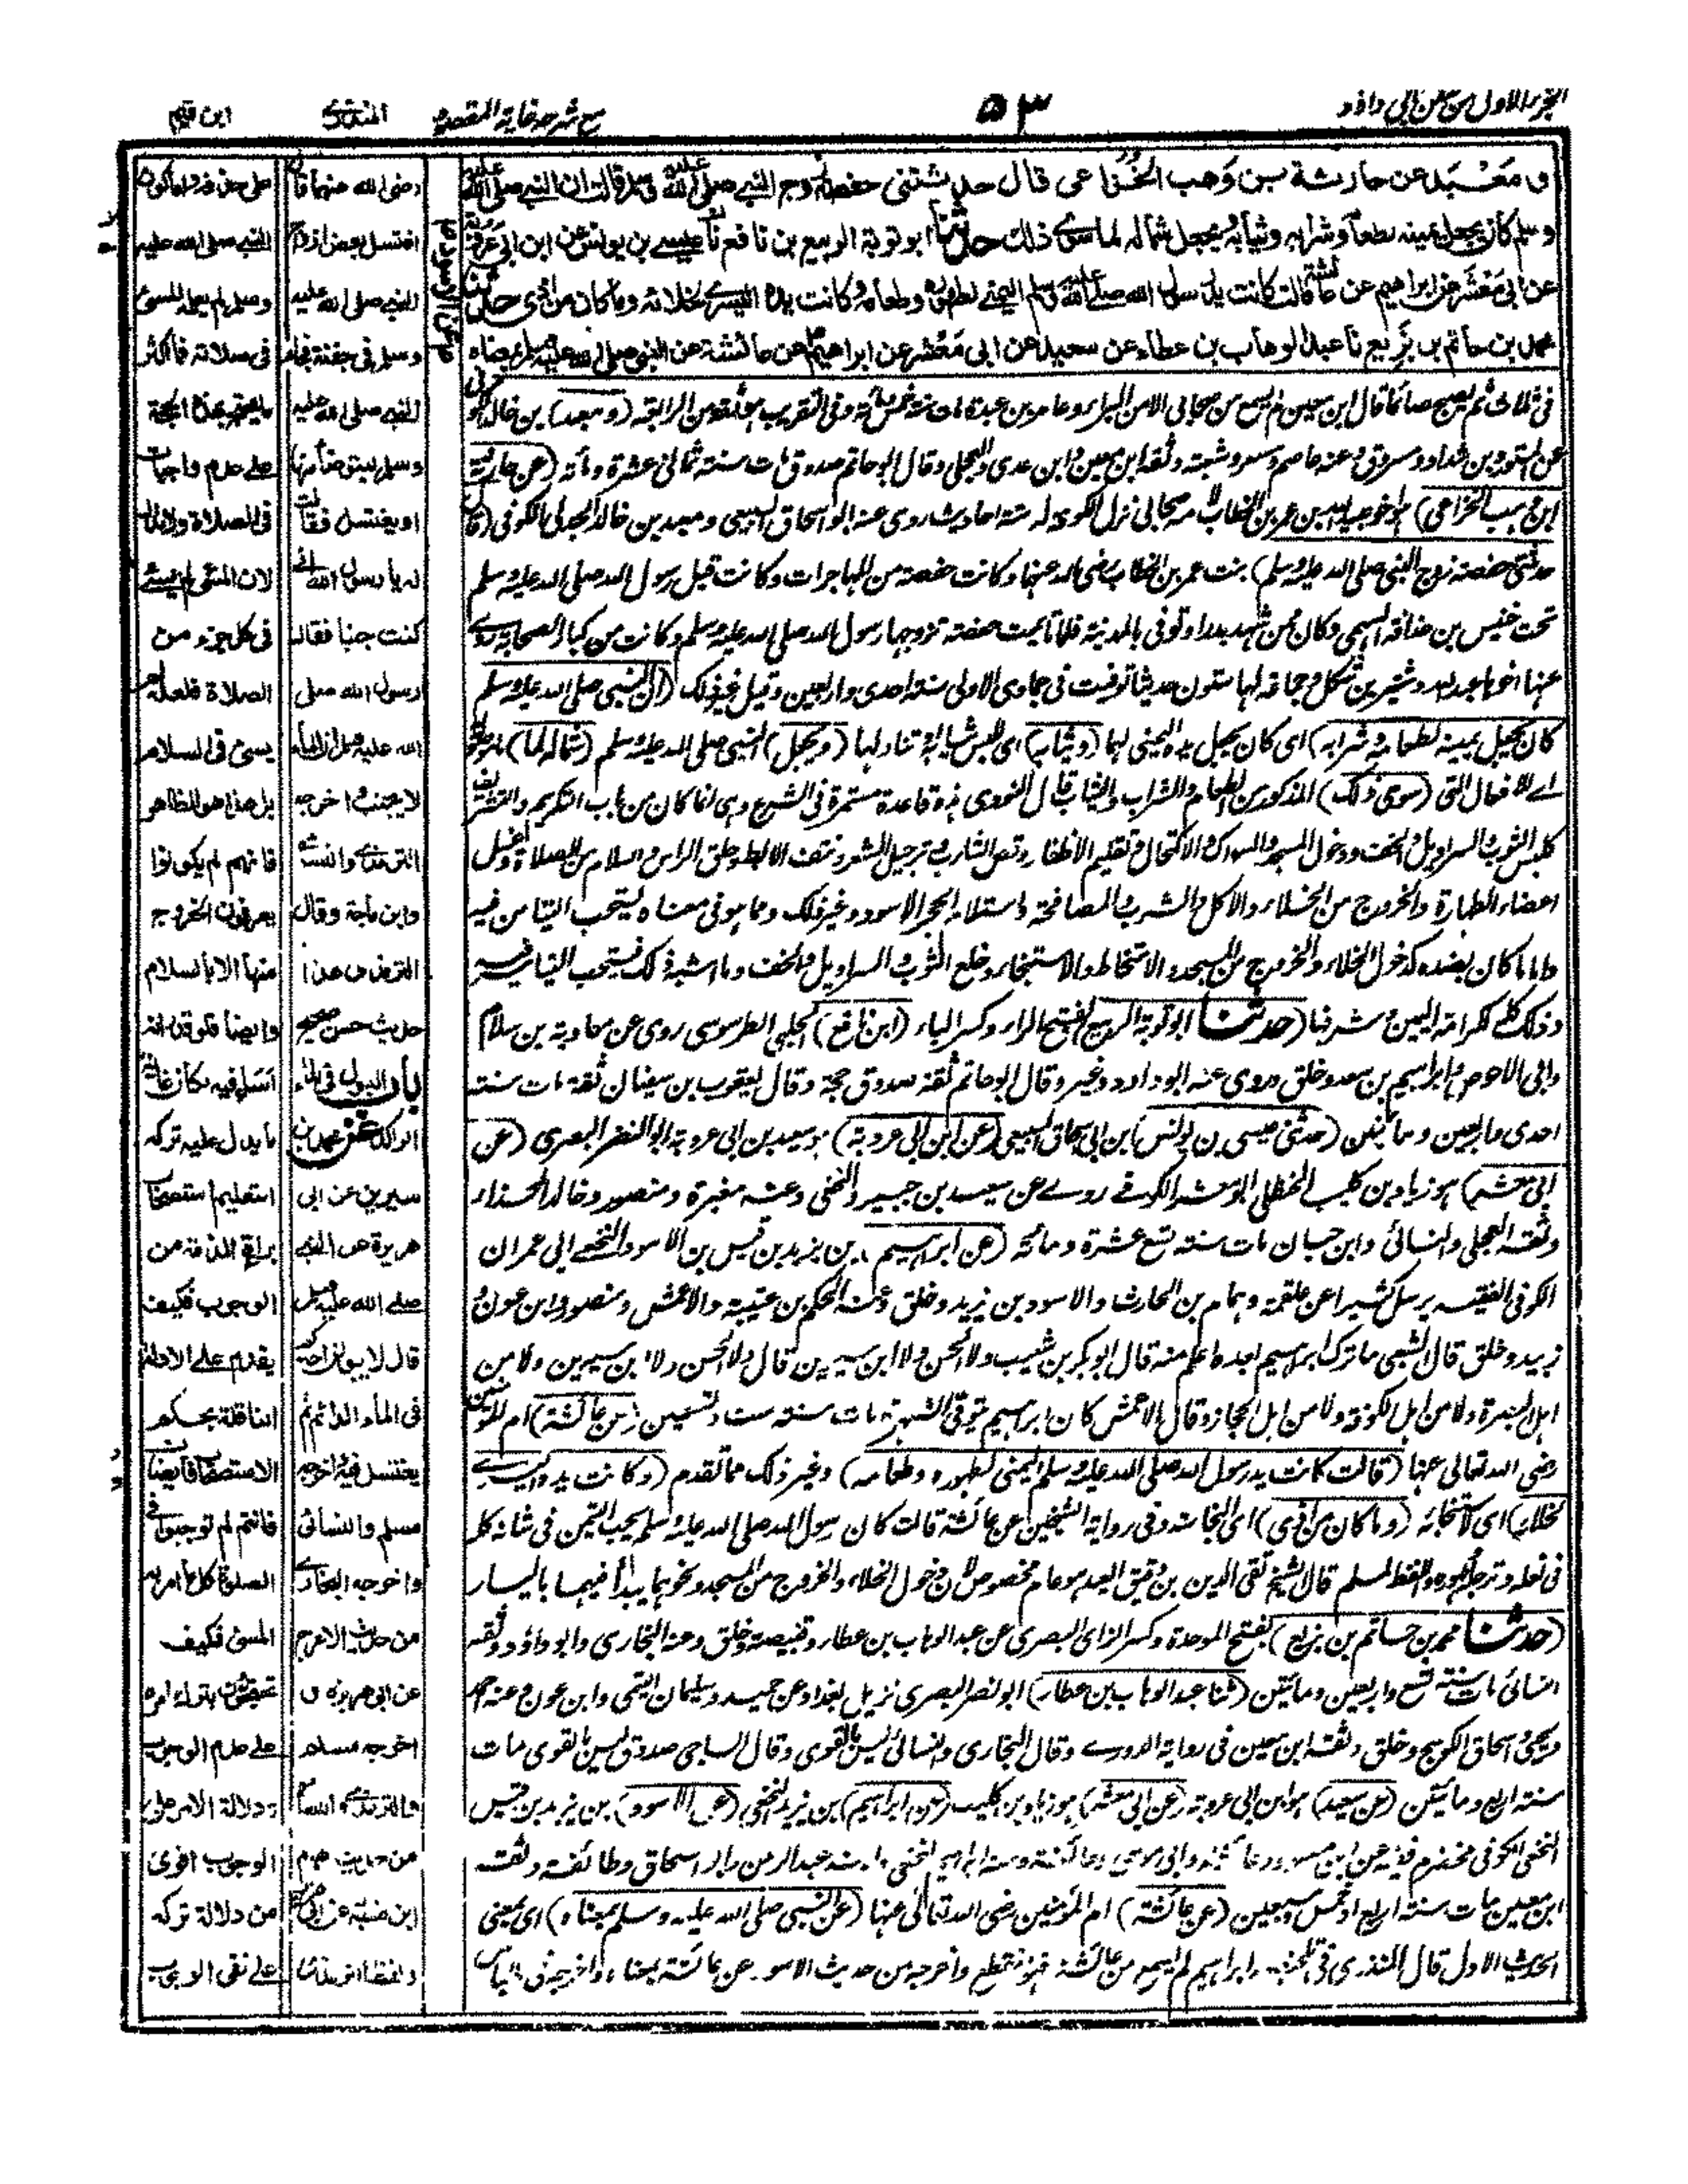 الجزء الاول من سنن ابى داؤد
٥٣
مع شرحه غاية المقصود
المنذرى
ابن قيم
ومَعْبَد عن حارثة بن وَهب الخُزاعى قال حدثتنى حفصة زوج النبى صلى الله عليه وسلم قالت ان النبى صلى الله عليه
وسلم كان يجعل يمينه لطعامه وشرابه وثيابه ويجعل شماله لما سوى ذلك حدثنا ابو توبة الربيع بن نافع نا عيسى بن يونس عن ابن ابى عروبة
عن ابى مَعْشَر عن ابراهيم عن عائشة قالت كانت يد رسول الله صلى الله عليه وسلم اليمنى لطهوره وطعامه وكانت يده اليسرى لخلائه وما كان من اذى حدثنا
محمد بن حاتم بن بَزيع نا عبد الوهاب بن عطاء عن سعيد عن ابى مَعْشر عن ابراهيم عن عائشة عن النبى صلى الله عليه وسلم بمعناه
عن الاسود
فى ثلاث ثم يصبح صائما قال ابن معين لم يسمع من صحابى الا من البراء وعامر بن عبدة مات سنة خمس ومائة وفى التقريب ثقة من الرابعة (ومعبد) بن خالد
عن المستورد بن شداد ومسروق وعنه عاصم ومسعر وشعبة وثقه ابن معين وابن عدى والعجلى وقال ابو حاتم صدوق مات سنة ثمانى عشرة ومأة (عن حارثة
ابن وهب الخزاعى) هو اخو عبيد الله بن عمر بن الخطاب لامه صحابى نزل الكوفة له ستة احاديث روى عنه ابو اسحاق السبيعى ومعبد بن خالد الجدلى الكوفى (قال
حدثتنى حفصة زوج النبى صلى الله عليه وسلم) بنت عمر بن الخطاب رضى الله عنهما وكانت حفصة من المهاجرات وكانت قبل رسول الله صلى الله عليه وسلم
تحت خنيس بن حذافة السهمى وكان ممن شهد بدرا وتوفى بالمدينة فلما تأيمت حفصة تزوجها رسول الله صلى الله عليه وسلم وكانت من كبار الصحابة روى
عنها اخوها عبد الله وشتير بن شكل وجماعة لها ستون حديثا توفيت فى جمادى الاولى سنة احدى واربعين وقيل غير ذلك (ان النبى صلى الله عليه وسلم
كان يجعل يمينه لطعامه وشرابه) اى كان يجعل يده اليمنى لهما (وثيابه) اى للبس ثيابه او تناولها (ويجعل) النبى صلى الله عليه وسلم (شماله لما)
اى للافعال التى (سوى ذلك) المذكور من الطعام والشراب والثياب قال النووى هذه قاعدة مستمرة فى الشرع وهى انما كان من باب التكريم والتشريف
كلبس الثوب والسراويل والخف ودخول المسجد والسواك والاكتحال وتقليم الاظفار وقص الشارب وترجيل الشعر ونتف الابط وحلق الراس والسلام من الصلاة وغسل
اعضاء الطهارة والخروج من الخلاء والاكل والشرب والمصافحة واستلام الحجر الاسود وغير ذلك ومما هو فى معناه يستحب التيامن فيه
واما ما كان بضده كدخول الخلاء والخروج من المسجد والامتخاط والاستنجاء وخلع الثوب والسراويل والخف وما اشبه ذلك فيستحب التياسر فيه
وذلك كله لكرامة اليمين وشرفها (حدثنا ابو توبة الربيع) بفتح الراء وكسر الباء (ابن نافع) الحلبى الطرسوسى روى عن معاوية بن سلام
وابى الاحوص وابراهيم بن سعد وخلق وروى عنه ابو داود وغيره وقال ابو حاتم ثقة صدوق حجة وقال يعقوب بن سفيان ثقة مات سنة
احدى واربعين ومائتين (حدثنى عيسى بن يونس) ابن ابى اسحاق السبيعى (عن ابن ابى عروبة) هو سعيد بن ابى عروبة ابو النضر البصرى (عن
ابى معشر) هو زياد بن كليب الحنظلى ابو معشر الكوفى روى عن سعيد بن جبير والنخعى وعنه مغيرة ومنصور وخالد الحذاء
وثقه العجلى والنسائى وابن حبان مات سنة تسع عشرة ومائة (عن ابراهيم) بن يزيد بن قيس بن الاسود النخعى ابى عمران
الكوفى الفقيه يرسل كثيرا عن علقمة وهمام بن الحارث والاسود بن يزيد وخلق وعنه الحكم بن عتيبة والاعمش ومنصور وابن عون و
زبيد وخلق قال الشعبى ما ترك ابراهيم احدا اعلم منه قال ابو بكر بن شعيب ولا الحسن ولا ابن سيرين قال ولا الحسن ولا ابن سيرين ولا من
اهل البصرة ولا من اهل الكوفة ولا من اهل الحجاز وقال الاعمش كان ابراهيم يتوقى الشهرة مات سنة ست وتسعين (عن عائشة) ام المؤمنين
رضى الله تعالى عنها (قالت كانت يد رسول الله صلى الله عليه وسلم اليمنى لطهوره وطعامه) وغير ذلك مما تقدم (وكانت يده اليسرى
لخلائه) اى لاستنجائه (وما كان من اذى) اى النجاسة وفى رواية الشيخين عن عائشة قالت كان رسول الله صلى الله عليه وسلم يحب التيمن فى شانه كله
فى نعله وترجله وطهوره واللفظ لمسلم قال الشيخ تقى الدين بن دقيق العيد هو عام مخصوص لان دخول الخلاء والخروج من المسجد ونحوهما يبدأ فيهما باليسار
(حدثنا محمد بن حاتم بن بزيع) بفتح الموحدة وكسر الزاى البصرى عن عبد الوهاب بن عطاء وقبيصة وخلق وعنه البخارى وابو داؤد وثقه
النسائى مات سنة تسع واربعين ومائتين (ثنا عبد الوهاب بن عطاء) ابو نصر البصرى نزيل بغداد عن حميد وسليمان التيمى وابن عون وعنه احمد
ويحيى واسحاق الكوسج وخلق وثقه ابن معين فى رواية الدورى وقال البخارى والنسائى ليس بالقوى وقال الساجى صدوق ليس بالقوى مات
سنة اربع ومائتين (عن سعيد) هو ابن ابى عروبة (عن ابى معشر) هو زياد بن كليب (عن ابراهيم) بن يزيد النخعى (عن الاسود) بن يزيد بن قيس
النخعى الكوفى مخضرم فقيه عن ابن مسعود وعائشة وابى موسى وعنه ابراهيم النخعى وابنه عبد الرحمن وابو اسحاق وطائفة وثقه
ابن معين مات سنة اربع او خمس وسبعين (عن عائشة) ام المؤمنين رضى الله تعالى عنها (عن النبى صلى الله عليه وسلم بمعناه) اى بمعنى
الحديث الاول قال المنذرى فى تلخيصه وابراهيم لم يسمع من عائشة فهو منقطع واخرجه من حديث الاسود عن عائشة بمعناه واخرجه فى اللباس
رضى الله عنهما قال
اغتسل بعض ازواج
النبى صلى الله عليه
وسلم فى جفنة فجاء
النبى صلى الله عليه
وسلم ليتوضأ منها
او يغتسل فقالت
له يا رسول الله انى
كنت جنبا فقال
رسول الله صلى
الله عليه وسلم ان الماء
لا يجنب اخرجه
الترمذى والنسائى
وابن ماجة وقال
الترمذى هذا
حديث حسن صحيح
باب البول فى الماء
الراكد عن محمد بن
سيرين عن ابى
هريرة عن النبى
صلى الله عليه وسلم
قال لا يبولن احدكم
فى الماء الدائم ثم
يغتسل فيه اخرجه
مسلم والنسائى
واخرجه البخارى
من حديث الاعرج
عن ابى هريرة و
اخرجه مسلم
والترمذى والنسائى
من حديث همام
ابن منبه عن ابى هريرة
ولفظ الترمذى
النبى صلى الله عليه
وسلم لم يعلمه المسئ
فى صلاته فاكثر
ما يحتج بهذه الحجة
على عدم واجبات
فى الصلاة ولا دلالة
لان المسئ لم يسئ
فى كل جزء من
الصلاة فلعله لم
يسئ فى السلام
بل هذا هو الظاهر
فانهم لم يكونوا
يعرفون الخروج
منها الا بالسلام
وايضا فلو قدر انه
اساء فيه لكان غاية
ما يدل عليه تركه
التعليم استصحاب
براءة الذمة من
الوجوب فكيف
يقدم على الادلة
الناقلة لحكم
الاستصحاب وايضا
فانتم لم توجبوا فى
الصلوة كل ما امر به
المسئ فكيف
تحتجون بترك امره
على عدم الوجوب
ودلالة الامر على
الوجوب اقوى
من دلالة تركه
على نفى الوجوب